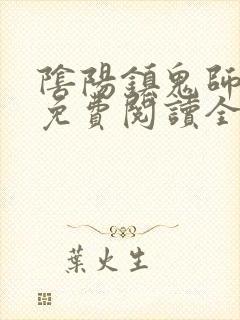 陰陽鎮鬼師
免費閱讀全
葉火生